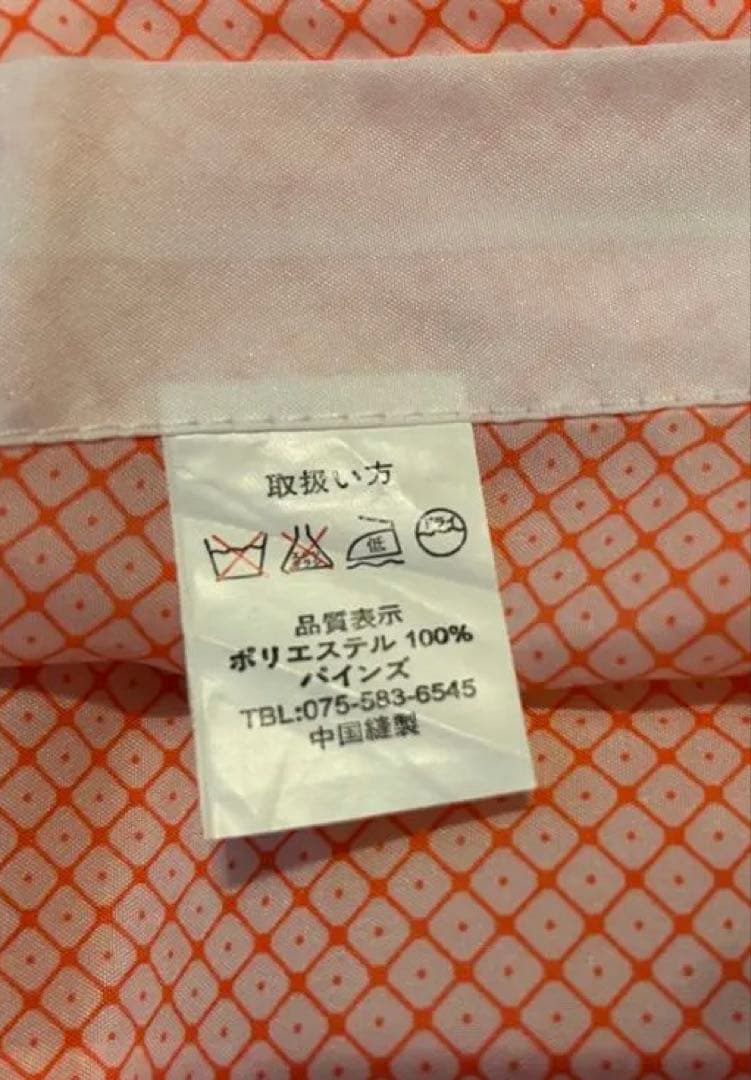 取扱い方
低 ドライ
品質表示
ポリエステル 100%
パインズ
TBL:075-583-6545
中国縫製